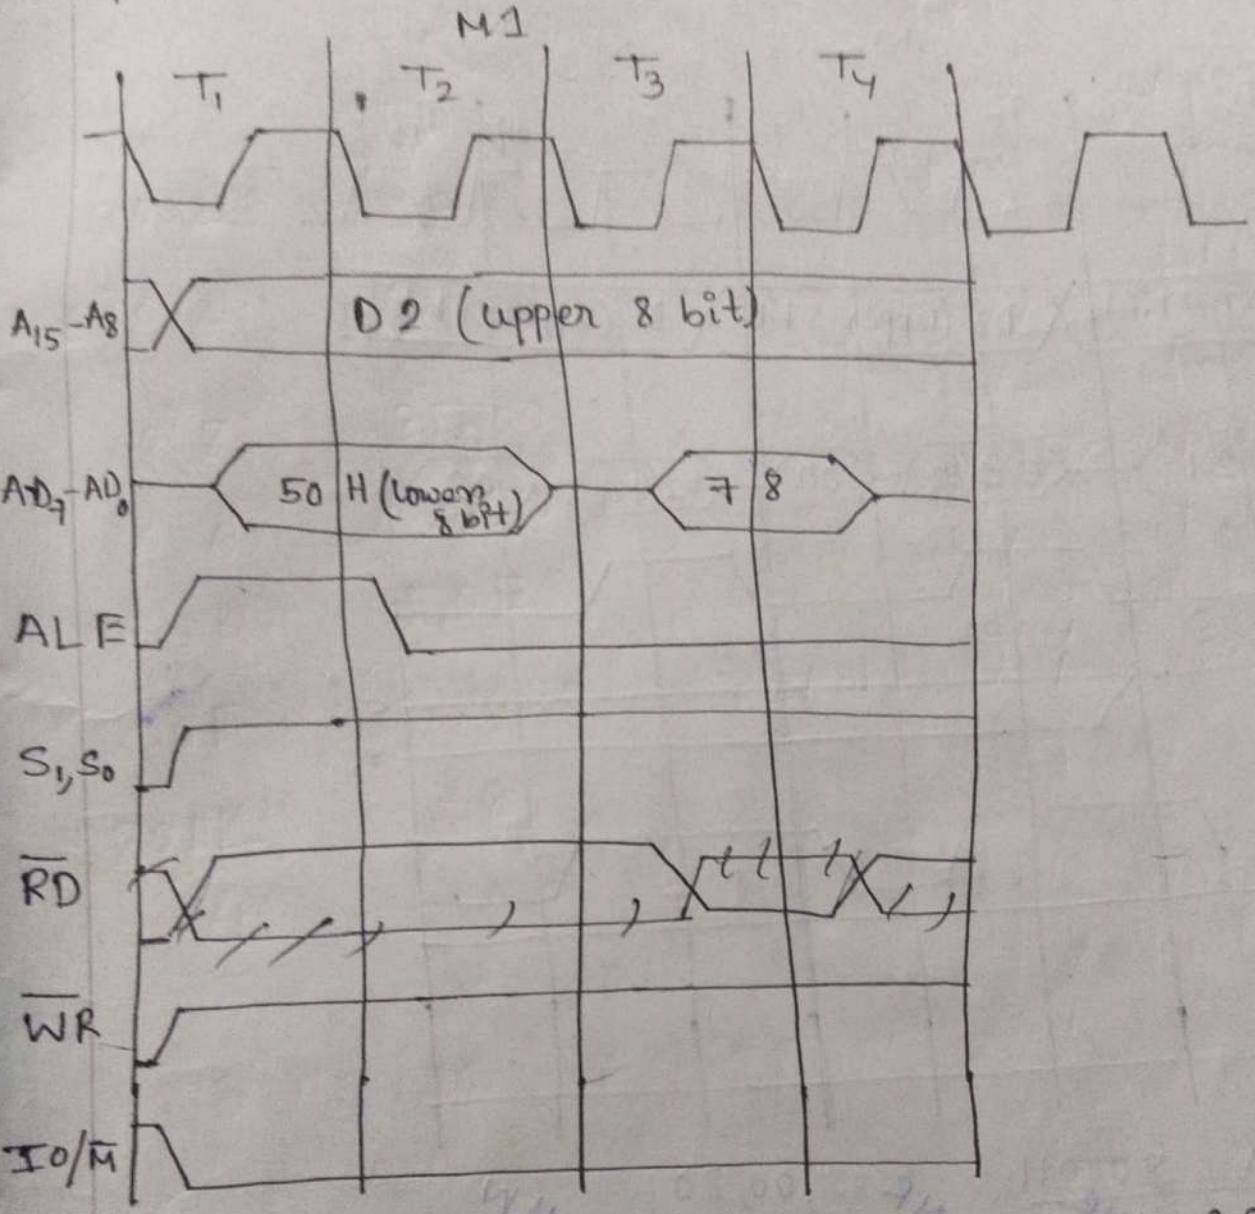 M1
T1 T2 T3 T4
A15-A8 D2 (upper 8 bit)
AD7-AD0 50 H (lower 8 bit) 78
ALE
S1,S0
R̅D̅
W̅R̅
IO/M̅